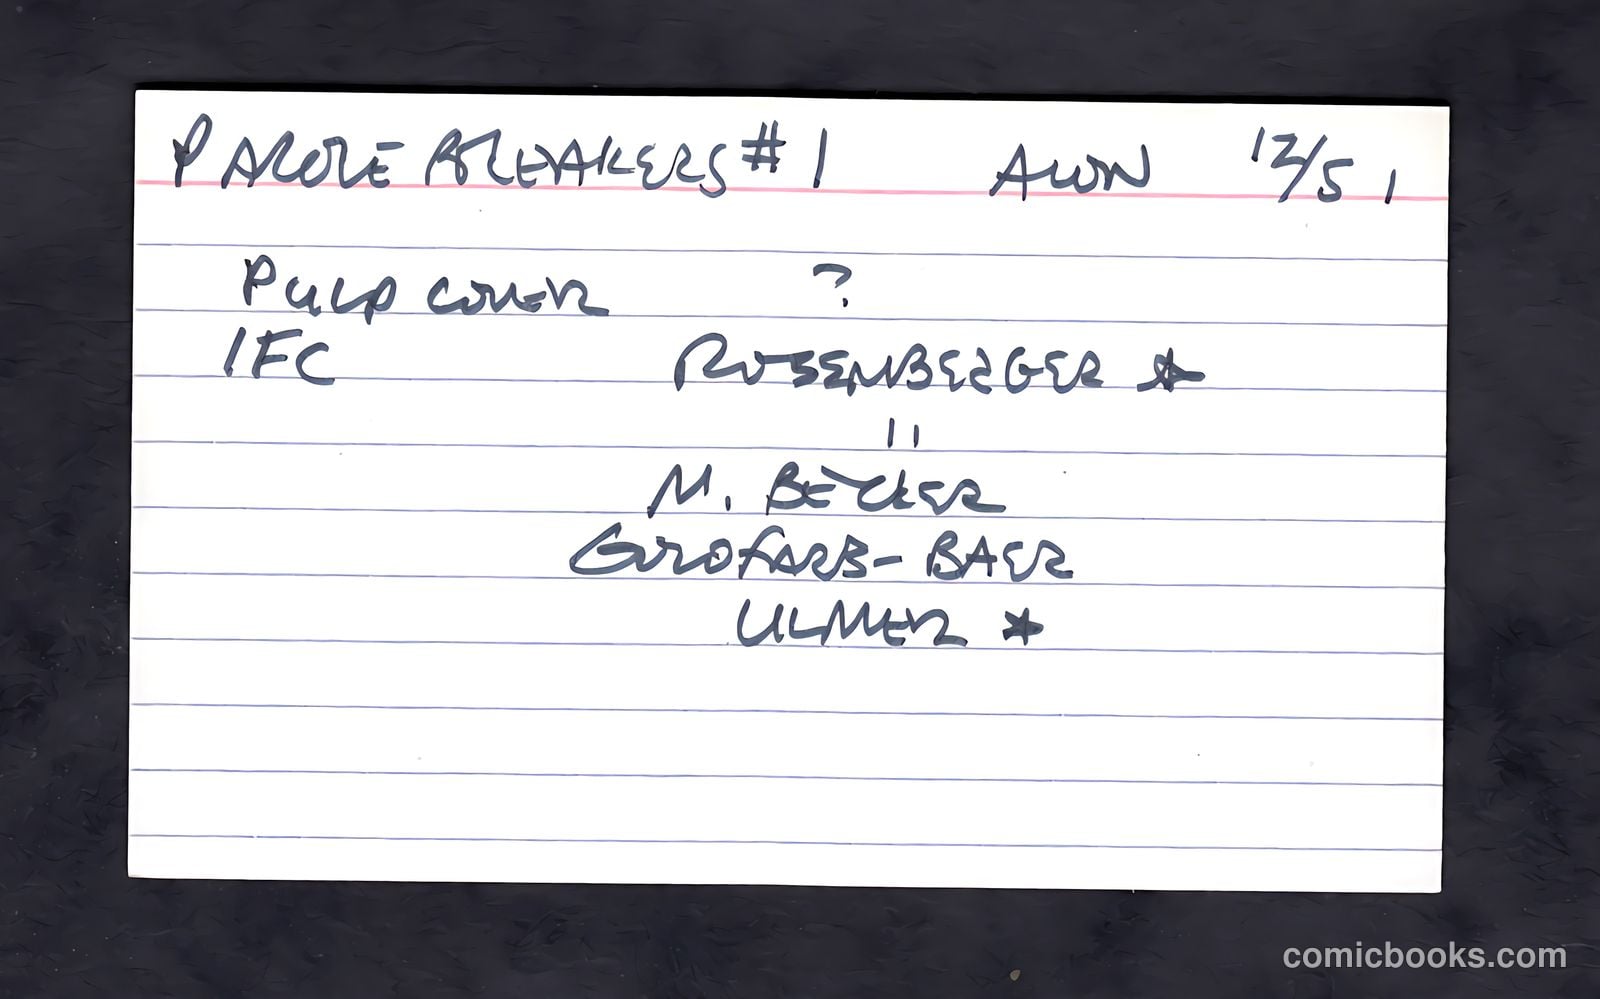 PAROLE BREAKERS #1 AVON 12/51
PULP COVER ?
IFC ROSENBERGER *
"
M. BECKER
GOLDFARB-BAER
ULMER *
comicbooks.com